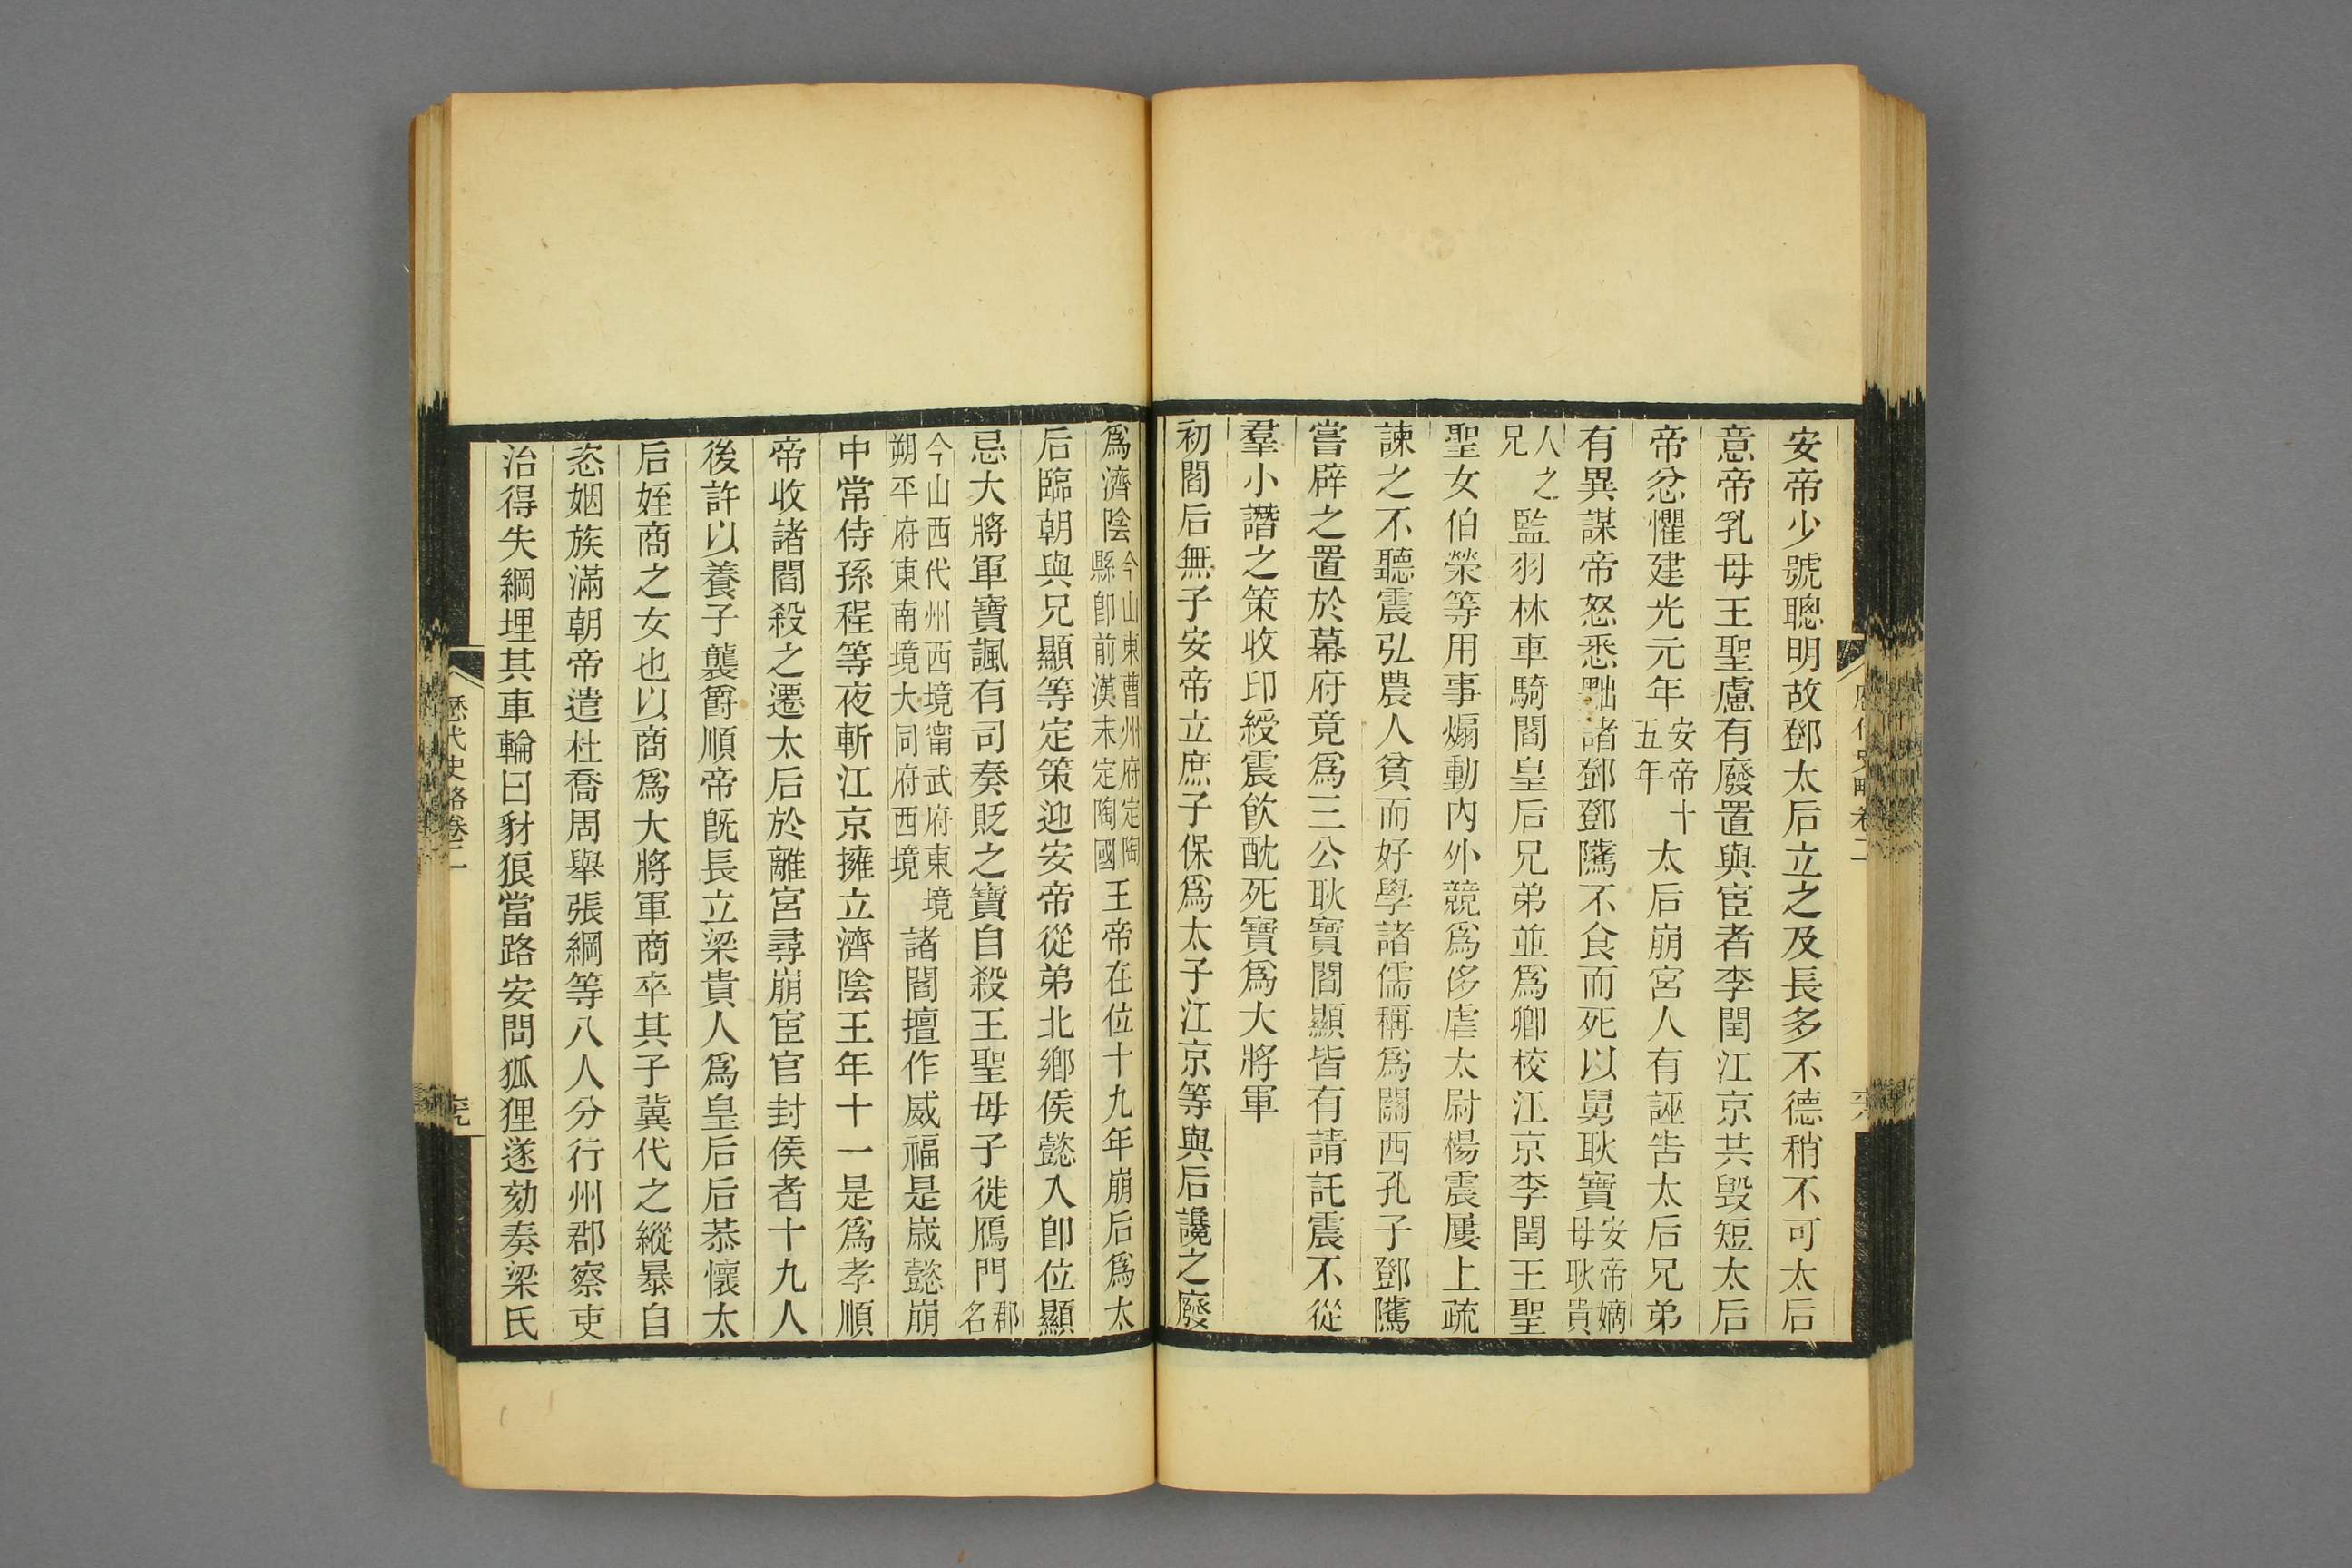 安帝少號聰明故鄧太后立之及長多不德稍不可太后
意帝乳母王聖慮有廢置與宦者李閏江京共毀短太后
帝忿懼建光元年安帝十五年太后崩宮人有誣告太后兄弟
有異謀帝怒悉黜諸鄧鄧騭不食而死以舅耿寶安帝嫡母耿貴
人之兄監羽林車騎閻皇后兄弟並爲卿校江京李閏王聖
聖女伯榮等用事煽動內外競爲侈虐太尉楊震屢上疏
諫之不聽震弘農人貧而好學諸儒稱爲關西孔子鄧騭
嘗辟之置於幕府竟爲三公耿寶閻顯皆有請託震不從
羣小譖之策收印綬震飮酖死寶爲大將軍
初閻后無子安帝立庶子保爲太子江京等與后讒之廢
爲濟陰今山東曹州府定陶縣卽前漢末定陶國王帝在位十九年崩后爲太
后臨朝與兄顯等定策迎安帝從弟北鄉侯懿入卽位顯
忌大將軍寶諷有司奏貶之寶自殺王聖母子徙鴈門郡名
今山西代州西境甯武府東境朔平府東南境大同府西境諸閻擅作威福是歲懿崩
中常侍孫程等夜斬江京擁立濟陰王年十一是爲孝順
帝收諸閻殺之遷太后於離宮尋崩宦官封侯者十九人
後許以養子襲爵順帝旣長立梁貴人爲皇后后恭懷太
后姪商之女也以商爲大將軍商卒其子冀代之縱暴自
恣姻族滿朝帝遣杜喬周舉張綱等八人分行州郡察吏
治得失綱埋其車輪曰豺狼當路安問狐狸遂劾奏梁氏
歷代史略卷二